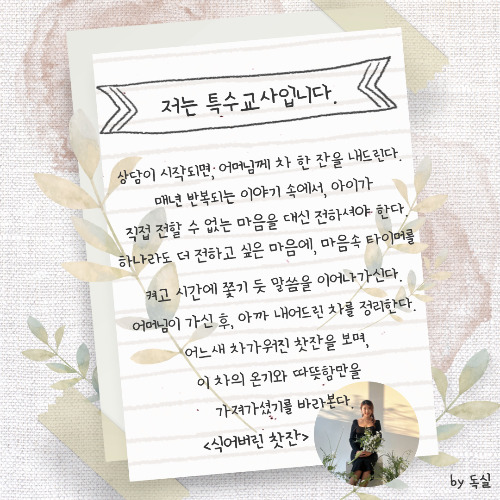 저는 특수교사입니다.
상담이 시작되면, 어머님께 차 한 잔을 내드린다.
매년 반복되는 이야기 속에서, 아이가
직접 전할 수 없는 마음을 대신 전하셔야 한다.
하나라도 더 전하고 싶은 마음에, 마음속 타이머를
켜고 시간에 쫓기 듯 말씀을 이어나가신다.
어머님이 가신 후, 아까 내어드린 차를 정리한다.
어느새 차가워진 찻잔을 보며,
이 차의 온기와 따뜻함만을
가져가셨기를 바라본다
<식어버린 찻잔>
by 독실